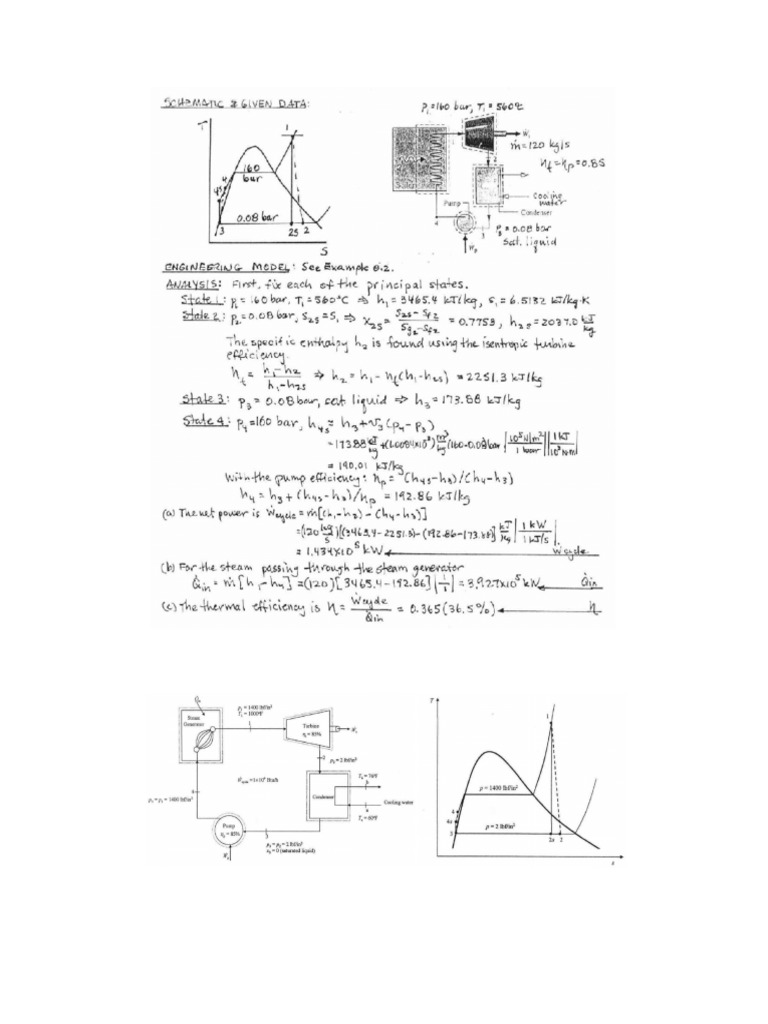 SCHEMATIC & GIVEN DATA:
T
1
160
bar
4
4s
0.08 bar
3
2s
2
S
P₁=160 bar, T₁=560°C
Ẇt
ṁ=120 kg/s
ηt=ηp=0.85
2
Cooling
water
Condenser
Pump
4
3
P₃=0.08 bar
Sat. liquid
Ẇp
ENGINEERING MODEL: See Example 8.2.
ANALYSIS: First, fix each of the principal states.
State 1: p₁=160 bar, T₁=560°C ⇒ h₁=3465.4 kJ/kg, s₁=6.5132 kJ/kg·K
State 2: p₂=0.08 bar, s2s=s₁ ⇒ x2s = (s2s-sf2)/(sg2-sf2) = 0.7753, h2s=2037.0 kJ/kg
The specific enthalpy h₂ is found using the isentropic turbine
efficiency.
ηt = (h₁-h₂)/(h₁-h2s) ⇒ h₂=h₁-ηt(h₁-h2s)=2251.3 kJ/kg
State 3: p₃=0.08 bar, sat liquid ⇒ h₃=173.88 kJ/kg
State 4: p₄=160 bar, h4s=h₃+v₃(p₄-p₃)
=173.88 kJ/kg+(1.0084×10⁻³)m³/kg(160-0.08)bar |10⁵N/m²/1 bar||1kJ/10³N·m|
=190.01 kJ/kg
With the pump efficiency: ηp=(h4s-h₃)/(h₄-h₃)
h₄=h₃+(h4s-h₃)/ηp=192.86 kJ/kg
(a) The net power is Ẇcycle=ṁ[(h₁-h₂)-(h₄-h₃)]
=(120 kg/s)[(3465.4-2251.3)-(192.86-173.88)] kJ/kg |1 kW/1 kJ/s|
=1.434×10⁵ kW Ẇcycle
(b) For the steam passing through the steam generator
Q̇in=ṁ[h₁-h₄]=(120)[3465.4-192.86]|1/1|=3.927×10⁵ kW Q̇in
(c) The thermal efficiency is η=Ẇcycle/Q̇in=0.365(36.5%) η
p₁ = 1400 lbf/in²
T₁ = 1000°F
1
Steam
Generator
Turbine
ηt = 85%
2
p₂ = 2 lbf/in²
Condenser
Cooling water
4
p₄ = p₁ = 1400 lbf/in²
Pump
ηp = 85%
3
p₃ = p₂ = 2 lbf/in²
x₃ = 0 (saturated liquid)
T
1
p = 1400 lbf/in²
4
4s
p = 2 lbf/in²
3
2s
2
s